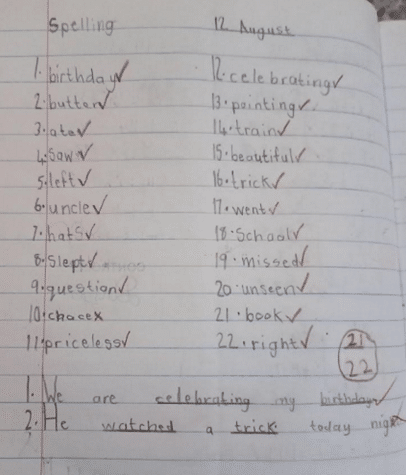 Spelling 12 August
1. birthday ✓ 12. celebrating ✓
2. butter ✓ 13. pointing ✓
3. ate ✓ 14. train ✓
4. Saw ✓ 15. beautiful ✓
5. left ✓ 16. trick ✓
6. uncle ✓ 17. went ✓
7. hats ✓ 18. School ✓
8. Slept ✓ 19. missed ✓
9. question ✓ 20. unseen ✓
10. chace x 21. book ✓
11. priceless ✓ 22. right ✓
21
22
1. We are celebrating my birthday ✓
2. He watched a trick today night